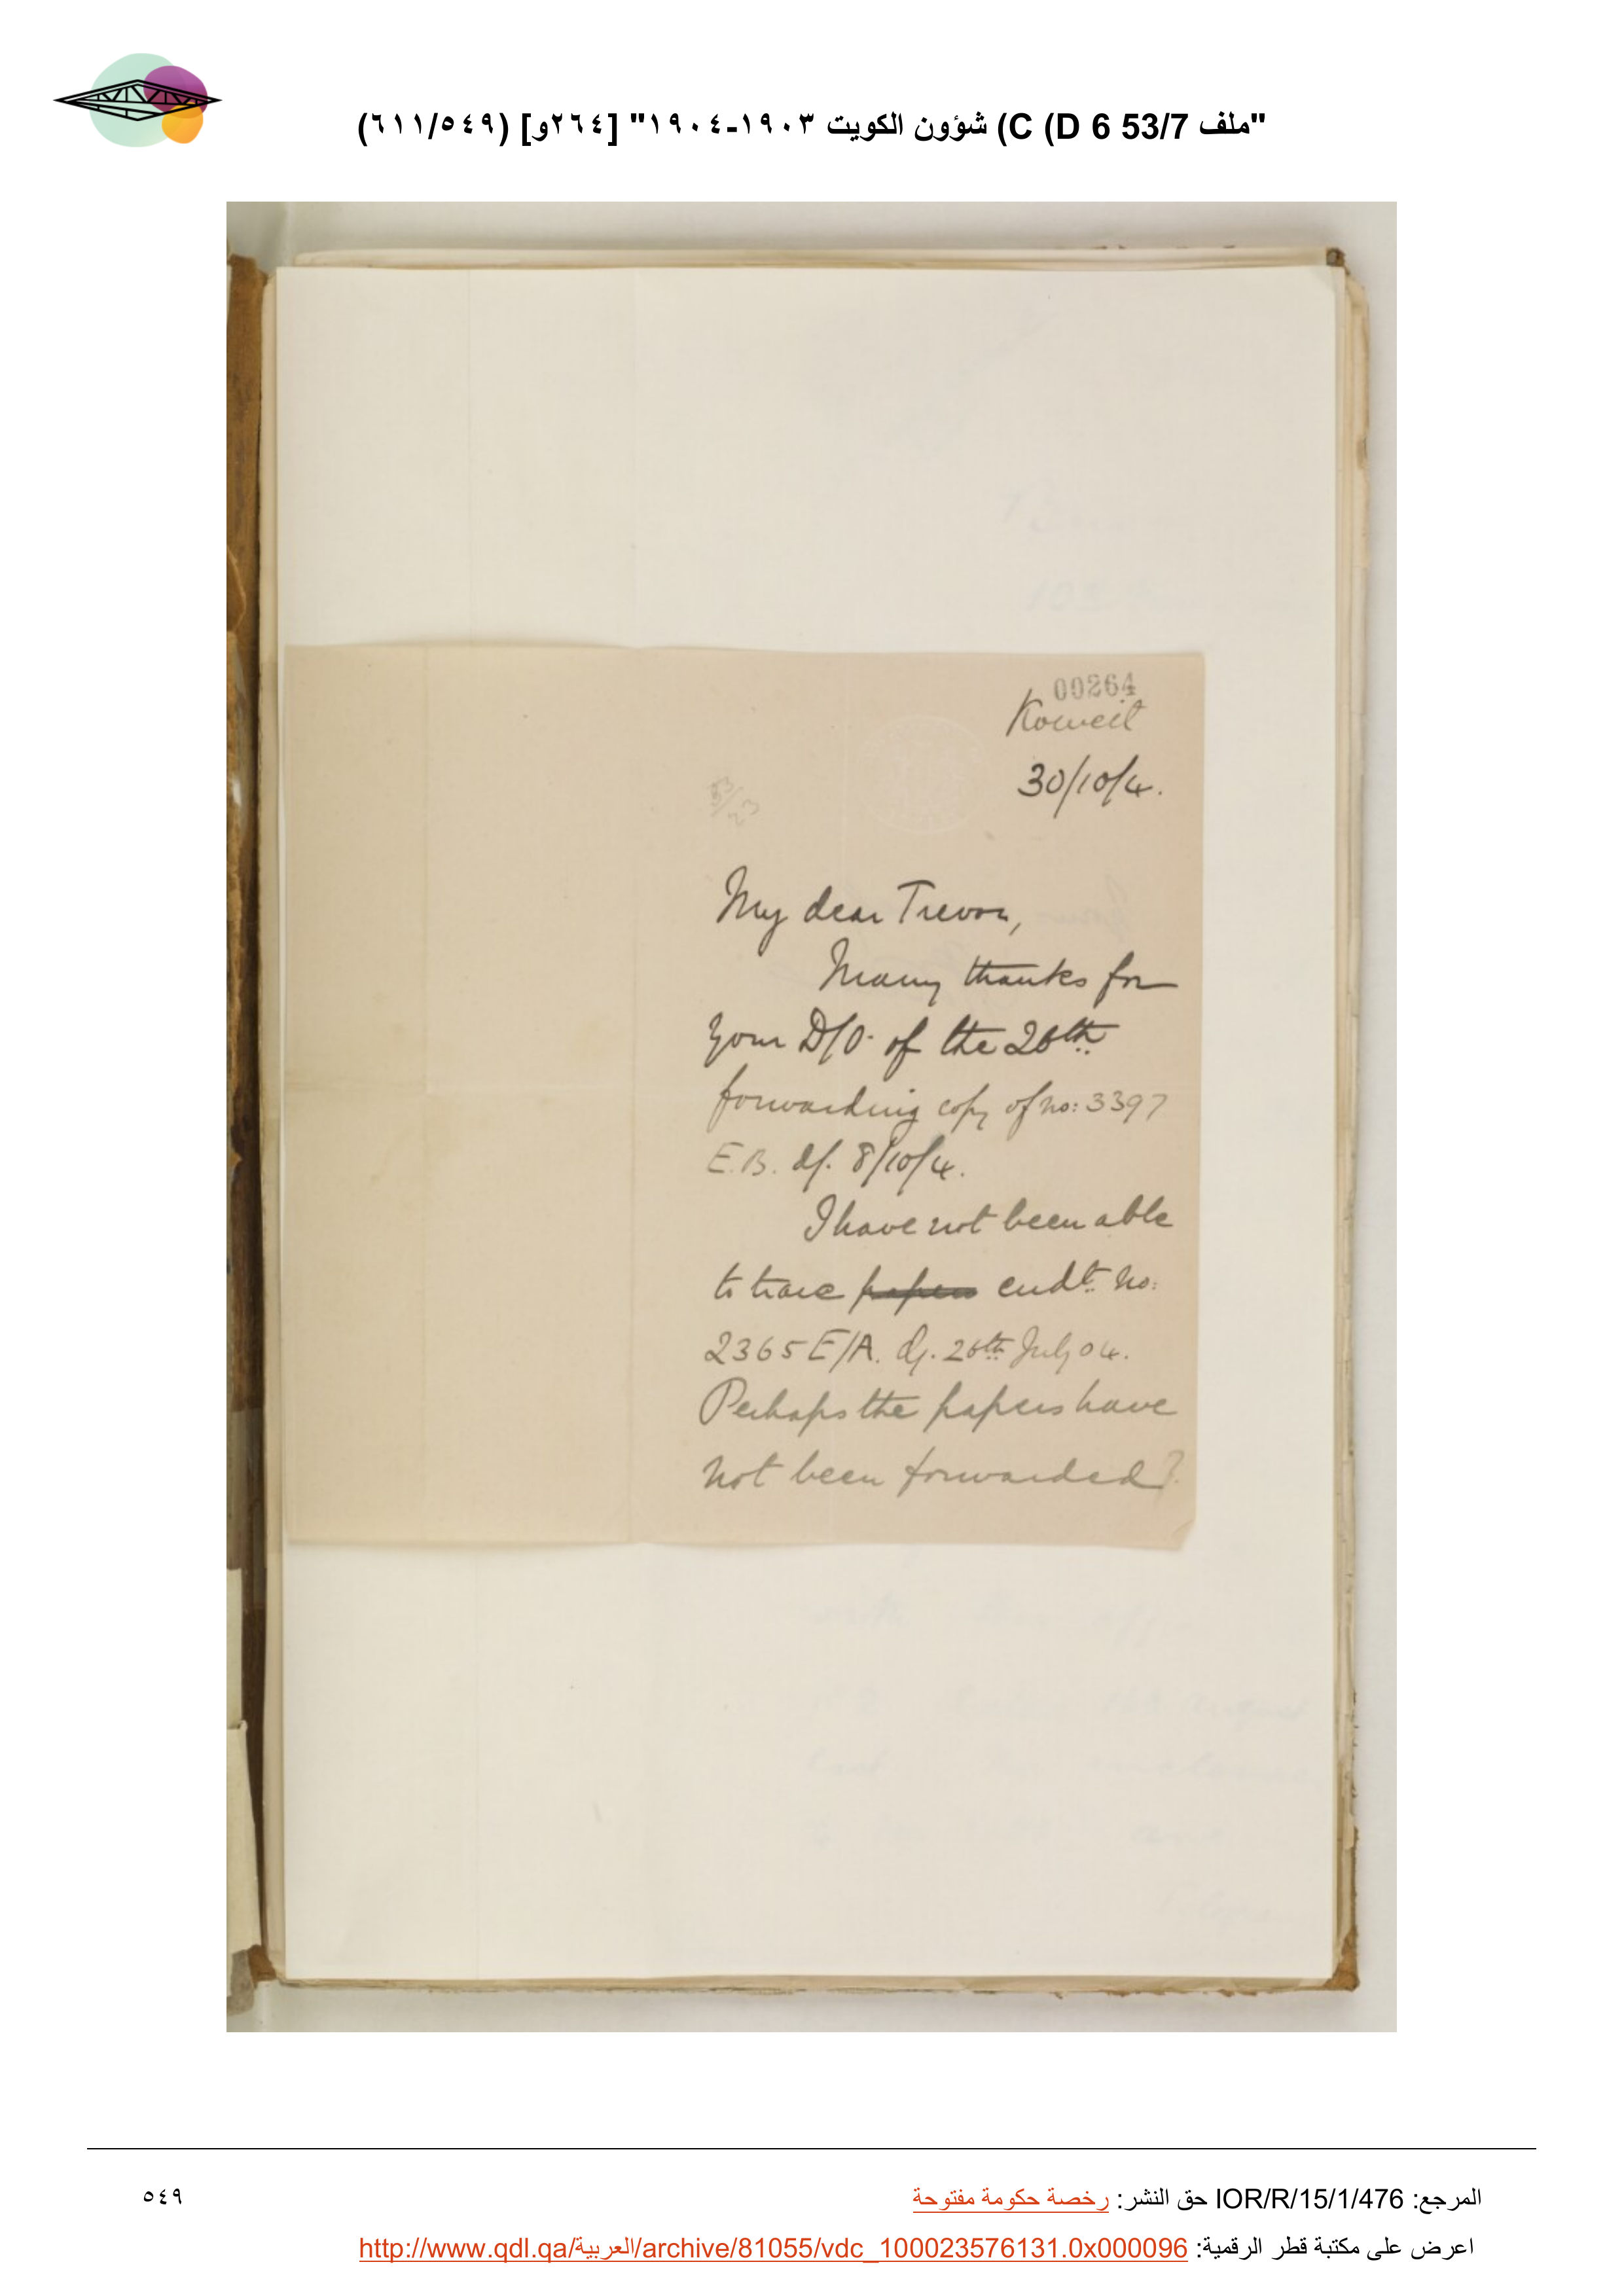 "ملف 53/7 6 D) C) شؤون الكويت ١٩٠٣-١٩٠٤" [٢٦٤و] (٦١١/٥٤٩)
00264
Koweit
30/10/4.
My dear Trevor,
Many thanks for
your D/O. of the 26th
forwarding copy of no: 3397
E.B. d/. 8/10/4.
I have not been able
to trace papers endt. no:
2365 E/A. d/. 26th July 04.
Perhaps the papers have
not been forwarded?
المرجع: IOR/R/15/1/476 حق النشر: رخصة حكومة مفتوحة
٥٤٩
اعرض على مكتبة قطر الرقمية: http://www.qdl.qa/العربية/archive/81055/vdc_100023576131.0x000096